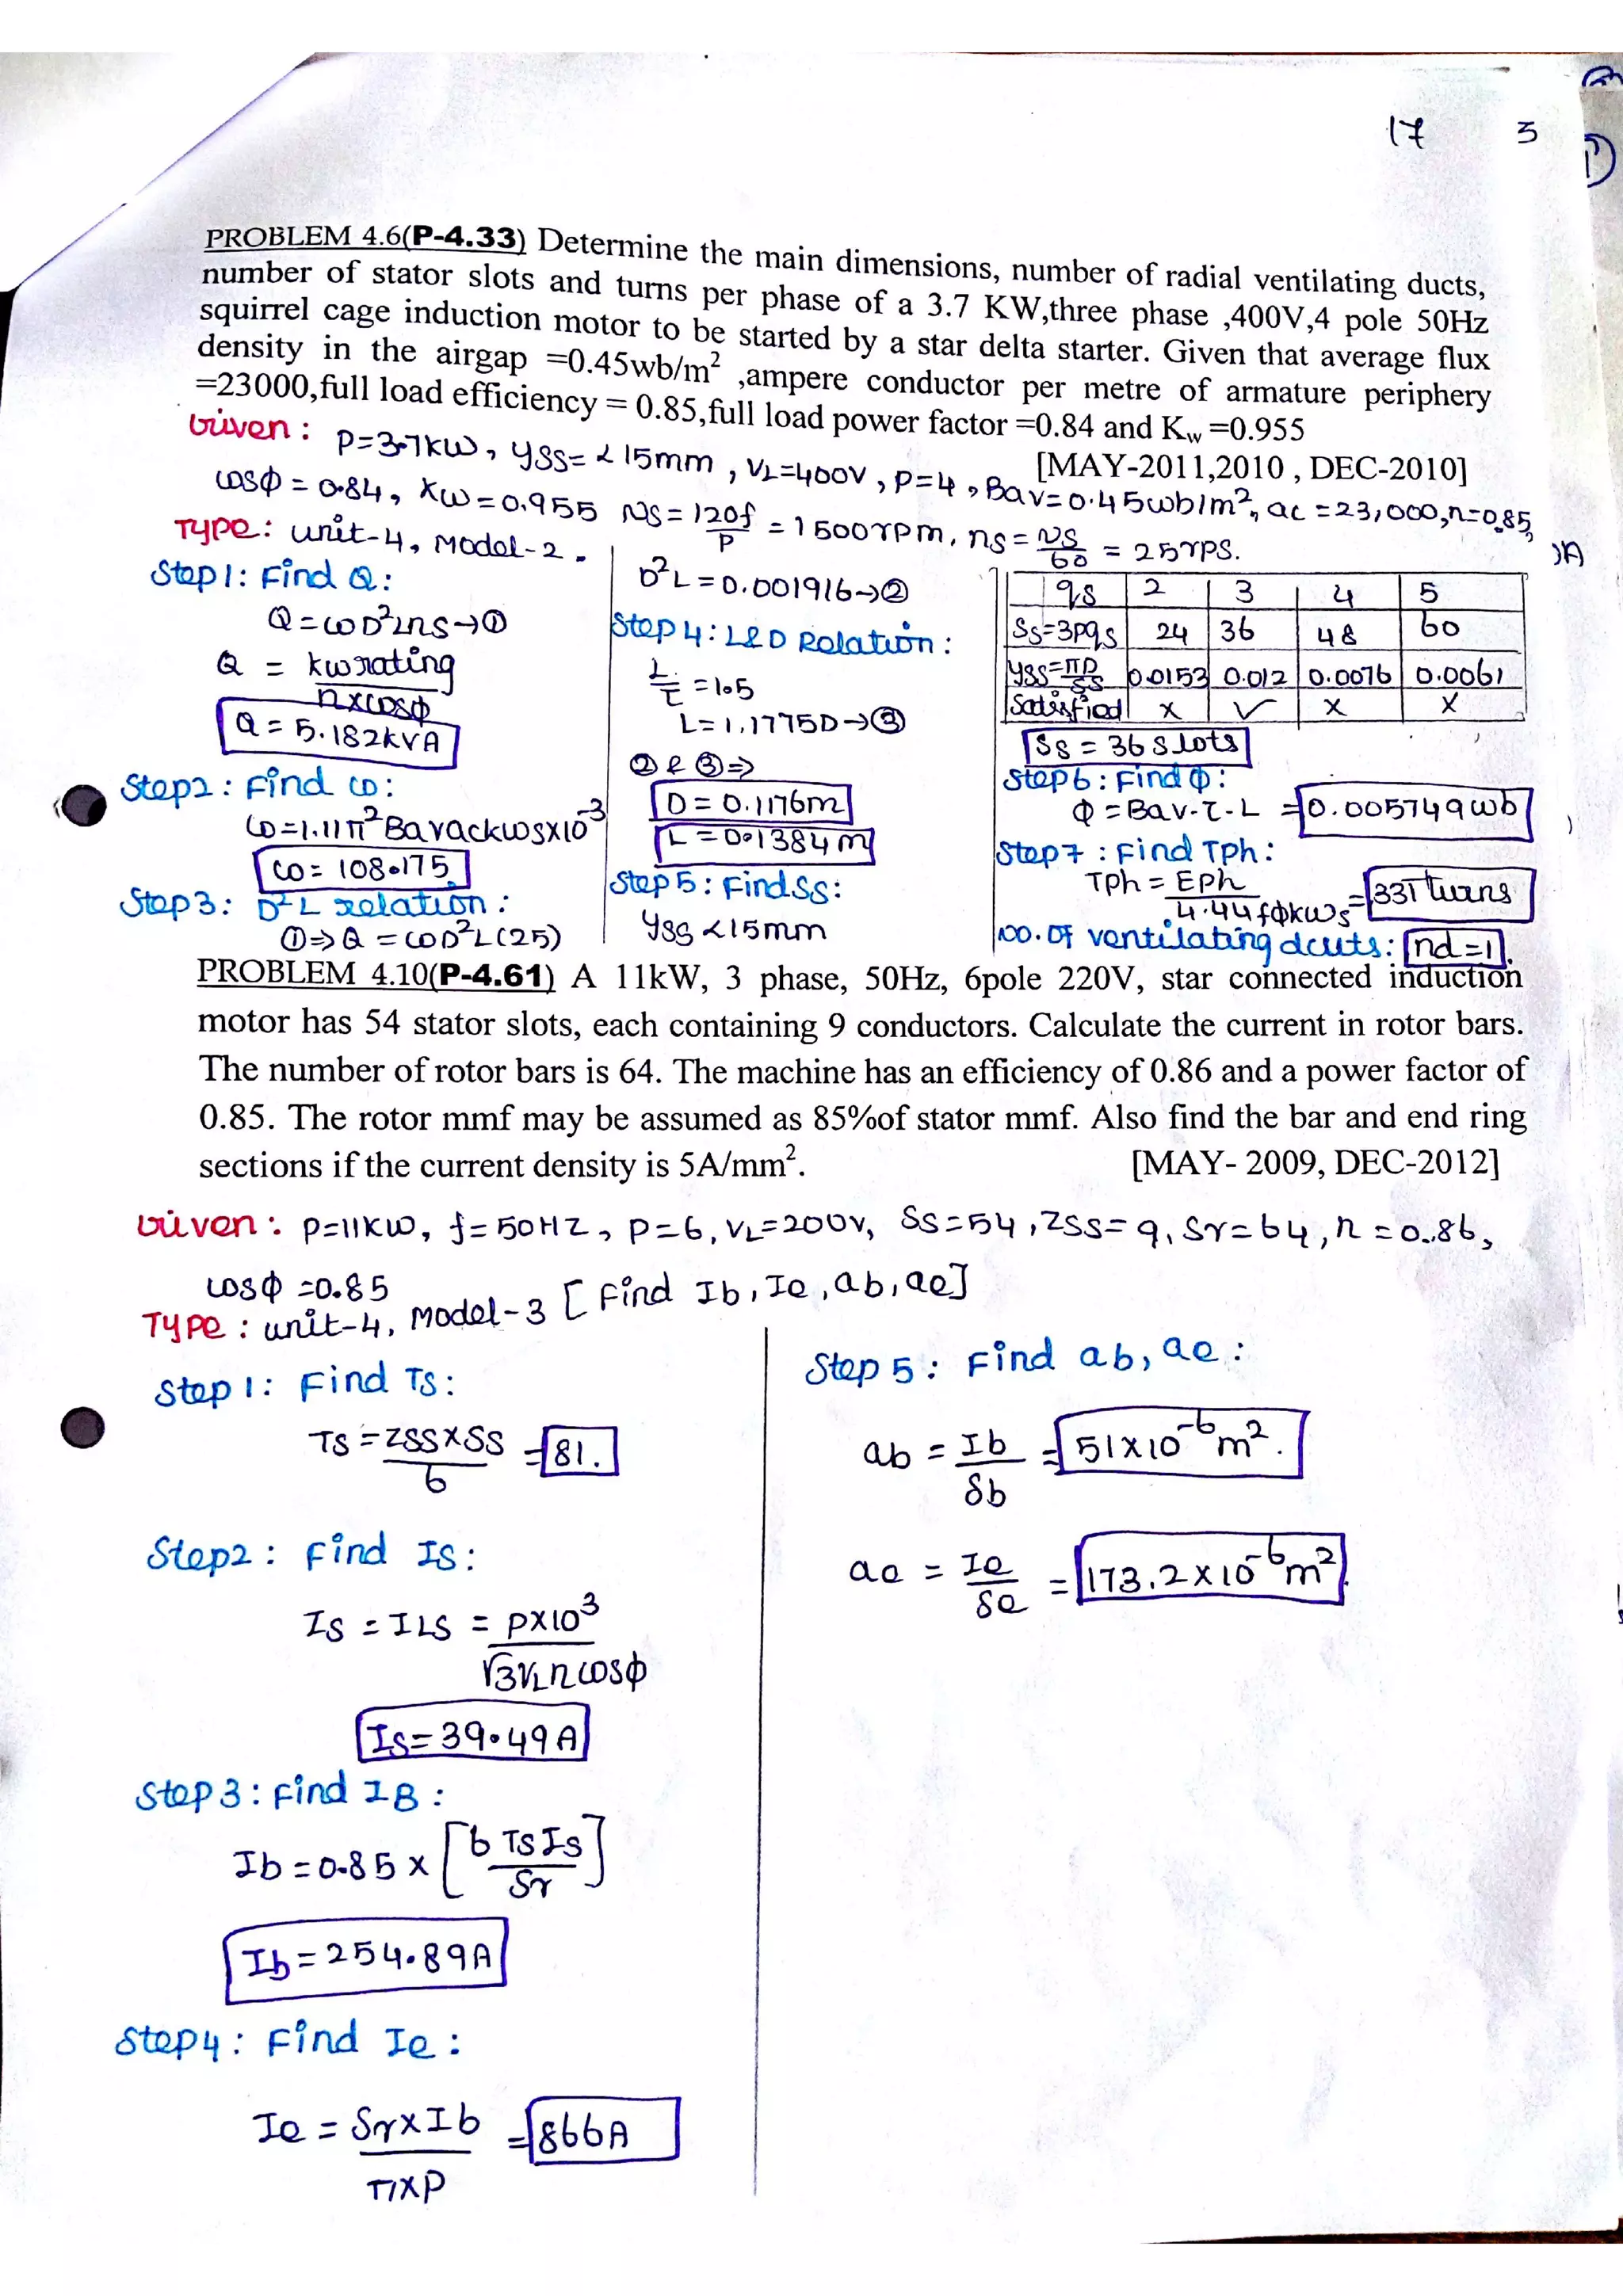 17 3
PROBLEM 4.6(P-4.33) Determine the main dimensions, number of radial ventilating ducts,
number of stator slots and turns per phase of a 3.7 KW,three phase ,400V,4 pole 50Hz
squirrel cage induction motor to be started by a star delta starter. Given that average flux
density in the airgap =0.45wb/m² ,ampere conductor per metre of armature periphery
=23000,full load efficiency = 0.85,full load power factor =0.84 and Kw =0.955
[MAY-2011,2010 , DEC-2010]
Given : P=3.7kW, yss= < 15mm , VL=400V , P=4 , Bav=0.45wb/m², ac =23,000,η=0.85,
cosϕ = 0.84, Kw=0.955 Ns= 120f/P = 1500rpm, ns= Ns/60 = 25rps.
Type: unit-4, Model-2.
Step1: Find Q:
Q=coD²Lns→①
Q = kwrating/η×cosϕ
Q = 5.182kVA
Step2: Find co:
co=1.11π²Bavackws×10⁻³
co= 108.175
Step3: D²L relation :
①⇒Q =coD²L(25)
D²L=0.001916→②
Step 4: L&D Relation :
L/τ =1.5
L= 1.1775D→③
② & ③⇒
D= 0.1176m
L = 0.1384m
Step5: Find Ss:
yss <15mm
qs 2 3 4 5
Ss=3pqs 24 36 48 60
yss=πD/Ss 0.0153 0.012 0.0076 0.0061
Satisfied x ✓ x x
Ss = 36 slots
Step6: Find ϕ:
ϕ =Bav.τ.L =0.005749wb
Step7 : Find Tph:
Tph= Eph/4.44fϕkws =331turns
no. of ventilating dcuts: nd=1.
PROBLEM 4.10(P-4.61) A 11kW, 3 phase, 50Hz, 6pole 220V, star connected induction
motor has 54 stator slots, each containing 9 conductors. Calculate the current in rotor bars.
The number of rotor bars is 64. The machine has an efficiency of 0.86 and a power factor of
0.85. The rotor mmf may be assumed as 85%of stator mmf. Also find the bar and end ring
sections if the current density is 5A/mm². [MAY- 2009, DEC-2012]
Given : P=11kW, f= 50HZ, P=6, VL=200V, Ss=54 , Zss= 9, Sr=64, η =0.86,
cosϕ =0.85
Type : unit-4, Model-3 [Find Ib, Ie, ab, ae]
Step 1: Find Ts:
Ts =Zss×Ss/6 =81.
Step2: Find Is:
Is = ILs = P×10³/√3VLηcosϕ
Is= 39.49A
Step 3: Find IB :
Ib =0.85 × [6 TsIs/Sr]
Ib=254.89A
Step4: Find Ie :
Ie = Sr×Ib/π×P =866A
Step 5: Find ab, ae :
ab = Ib/δb = 51×10⁻⁶m².
ae = Ie/δe =173.2×10⁻⁶m².